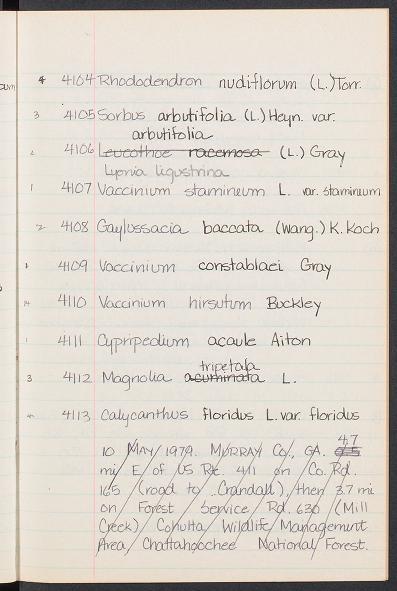 4 4104 Rhododendron nudiflorum (L.) Torr.
3 4105 Sorbus arbutifolia (L.) Heyn. var.
arbutifolia
2 4106 Leucothoe racemosa (L.) Gray
Lyonia ligustrina
1 4107 Vaccinium stamineum L. var. stamineum
2 4108 Gaylussacia baccata (Wang.) K. Koch
4109 Vaccinium constablaei Gray
4110 Vaccinium hirsutum Buckley
1 4111 Cypripedium acaule Aiton
tripetala
3 4112 Magnolia acuminata L.
4113 Calycanthus floridus L. var. floridus
10 MAY 1979. MURRAY Co., GA. 4.7
mi E of US Rt. 411 on Co. Rd.
165 (road to Crandall), then 3.7 mi
on Forest Service Rd. 630 (Mill
Creek) Cohutta Wildlife Management
Area, Chattahoochee National Forest.